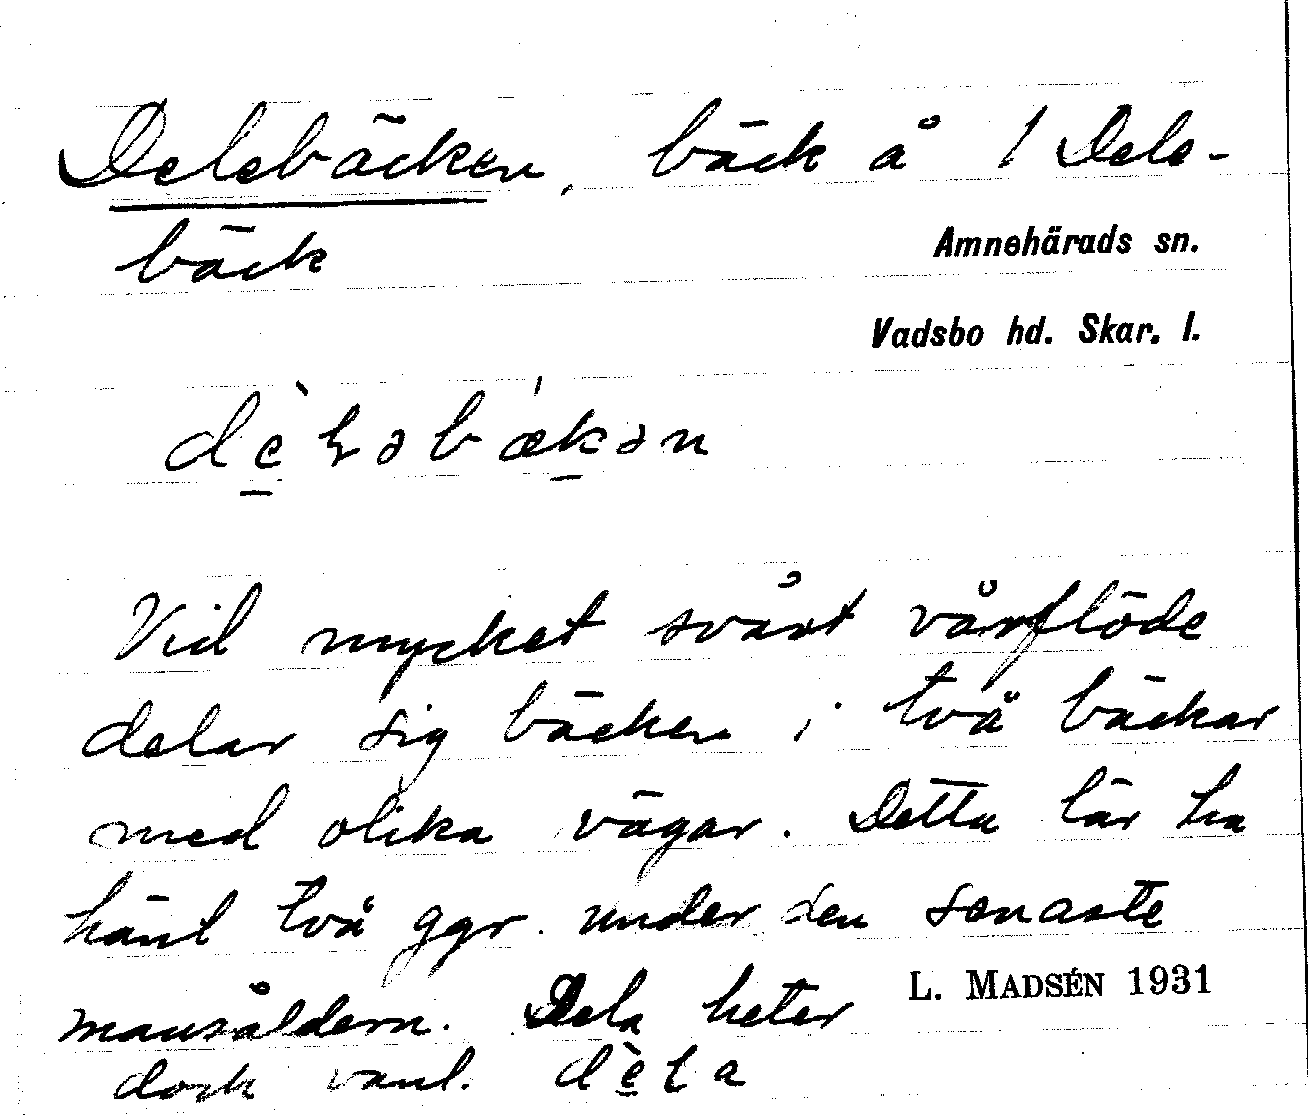 Delebäcken, bäck å 1 Dele-
bäck
Amnehärads sn.
Vadsbo hd. Skar. l.
Vid mycket svårt vårflöde
delar sig bäcken i två bäckar
med olika vägar. Detta lär ha
hänt två ggr. under den senaste
mansåldern. Dela heter
L. MADSÉN 1931
dock vanl. dèla